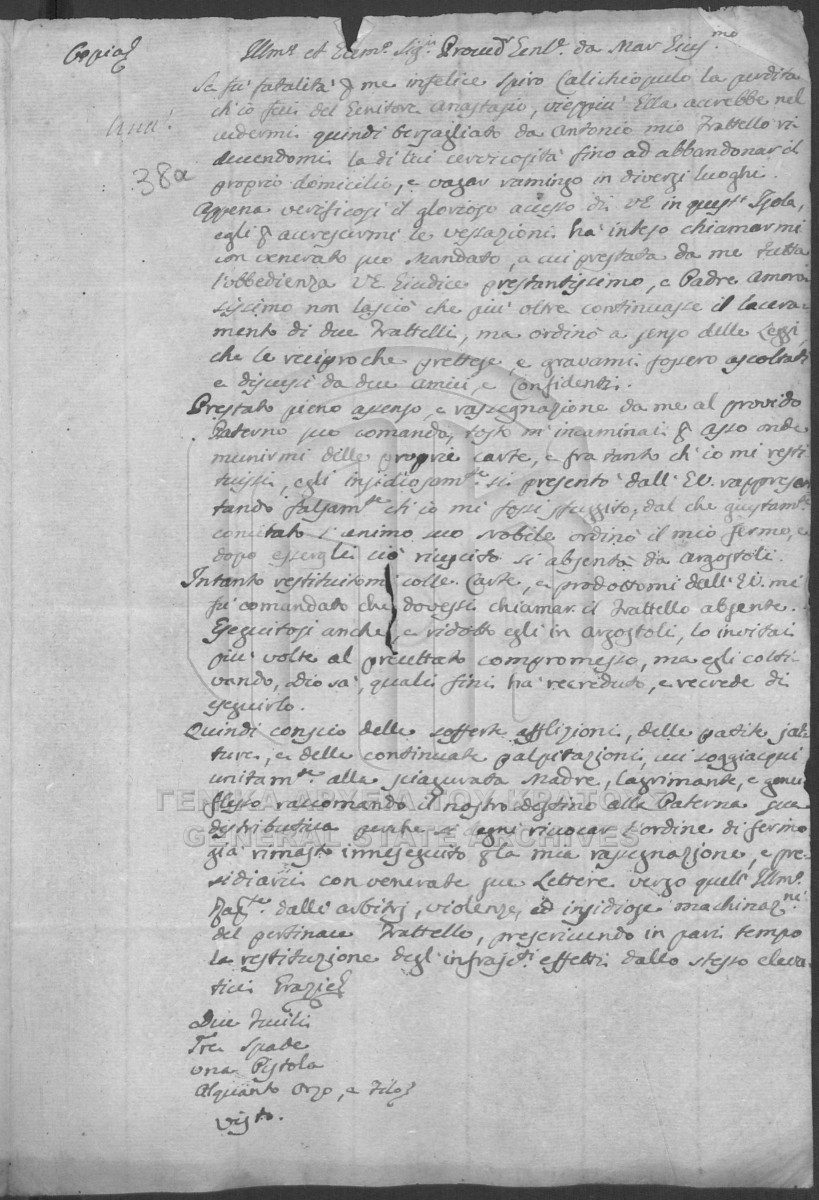 Copia
Illmo et Eccmo Sigr Provedr Genl da Mar
Se fù fatalità p me infelice Spiro Calichiopulo la perdita
ch'io feci del Genitore Anastasio, vieppiù Ella accrebbe nel
vedermi quindi bersagliato da Antonio mio Frattello ri
ducendomi la di lui cervicosità fino ad abbandonar il
38a
proprio domicilio, e vagar ramingo in diversi luoghi.
Appena verificosi il glorioso accesso di VE in quest' Isola,
egli p accrescermi le vessazioni hà inteso chiamarmi
con venerato suo Mandato, a cui prestata da me tutta
l'obbedienza VE Giudice prestantissimo, e Padre Amoro
sissimo non lasciò che più oltre continuasse il lacera
mento di due Frattelli, ma ordinò a senso delle Leggi,
che le reciproche prettese, e gravami fossero ascoltati
e discussi da due amici, e Confidenti.
Prestato pieno assenso, e rassegnazione da me al provido
Paterno suo comando, tosto m'incaminai p Asso onde
munirmi delle proprie carte, e fra tanto ch'io mi resti
tuissi, egli insidiosamte si presentò dall' EV. rappresen
tando falsamte ch'io mi fossi sfuggito, dal che giustamte
concitato l'animo suo Nobile ordinò il mio fermo, e
dopo essergli ciò riuscito si absentò da Argostoli.
Intanto restituitomi colle Carte, e prodottomi dall' EV. mi
fù comandato che dovessi chiamar il Frattello absente.
Eseguitosi anche, e ridotto egli in Argostoli, lo invitai
più volte al precettato compromesso, ma egli colti
vando, Dio sà, quali fini hà recreduto, e recrede di
eseguirlo.
Quindi conscio delle sofferte afflizioni, delle patite jat
ture, e delle continuate palpitazioni, cui soggiacqui
unitamte alla sciagurata Madre, lagrimante, e genu
flesso raccomando il nostro destino alla Paterna sua
distributiva perche si degni rivocar l'ordine di fermo
già rimasto ineseguito p la mia rassegnazione, e pre
sidiarci con venerate sue Lettere verso quell' Illmo
dalli arbitrj, violenze, ed insidiose machinazni
del pertinace Frattello, prescrivendo in pari tempo
la restituzione degl'infrascti effetti dallo stesso eleva
tici Grazie
Due Fucili
Tre Spade
Una Pistola
Alquanto Orzo, e Filo
Visto.
ΓΕΝΙΚΑ ΑΡΧΕΙΑ ΤΟΥ ΚΡΑΤΟΥΣ
GENERAL STATE ARCHIVES